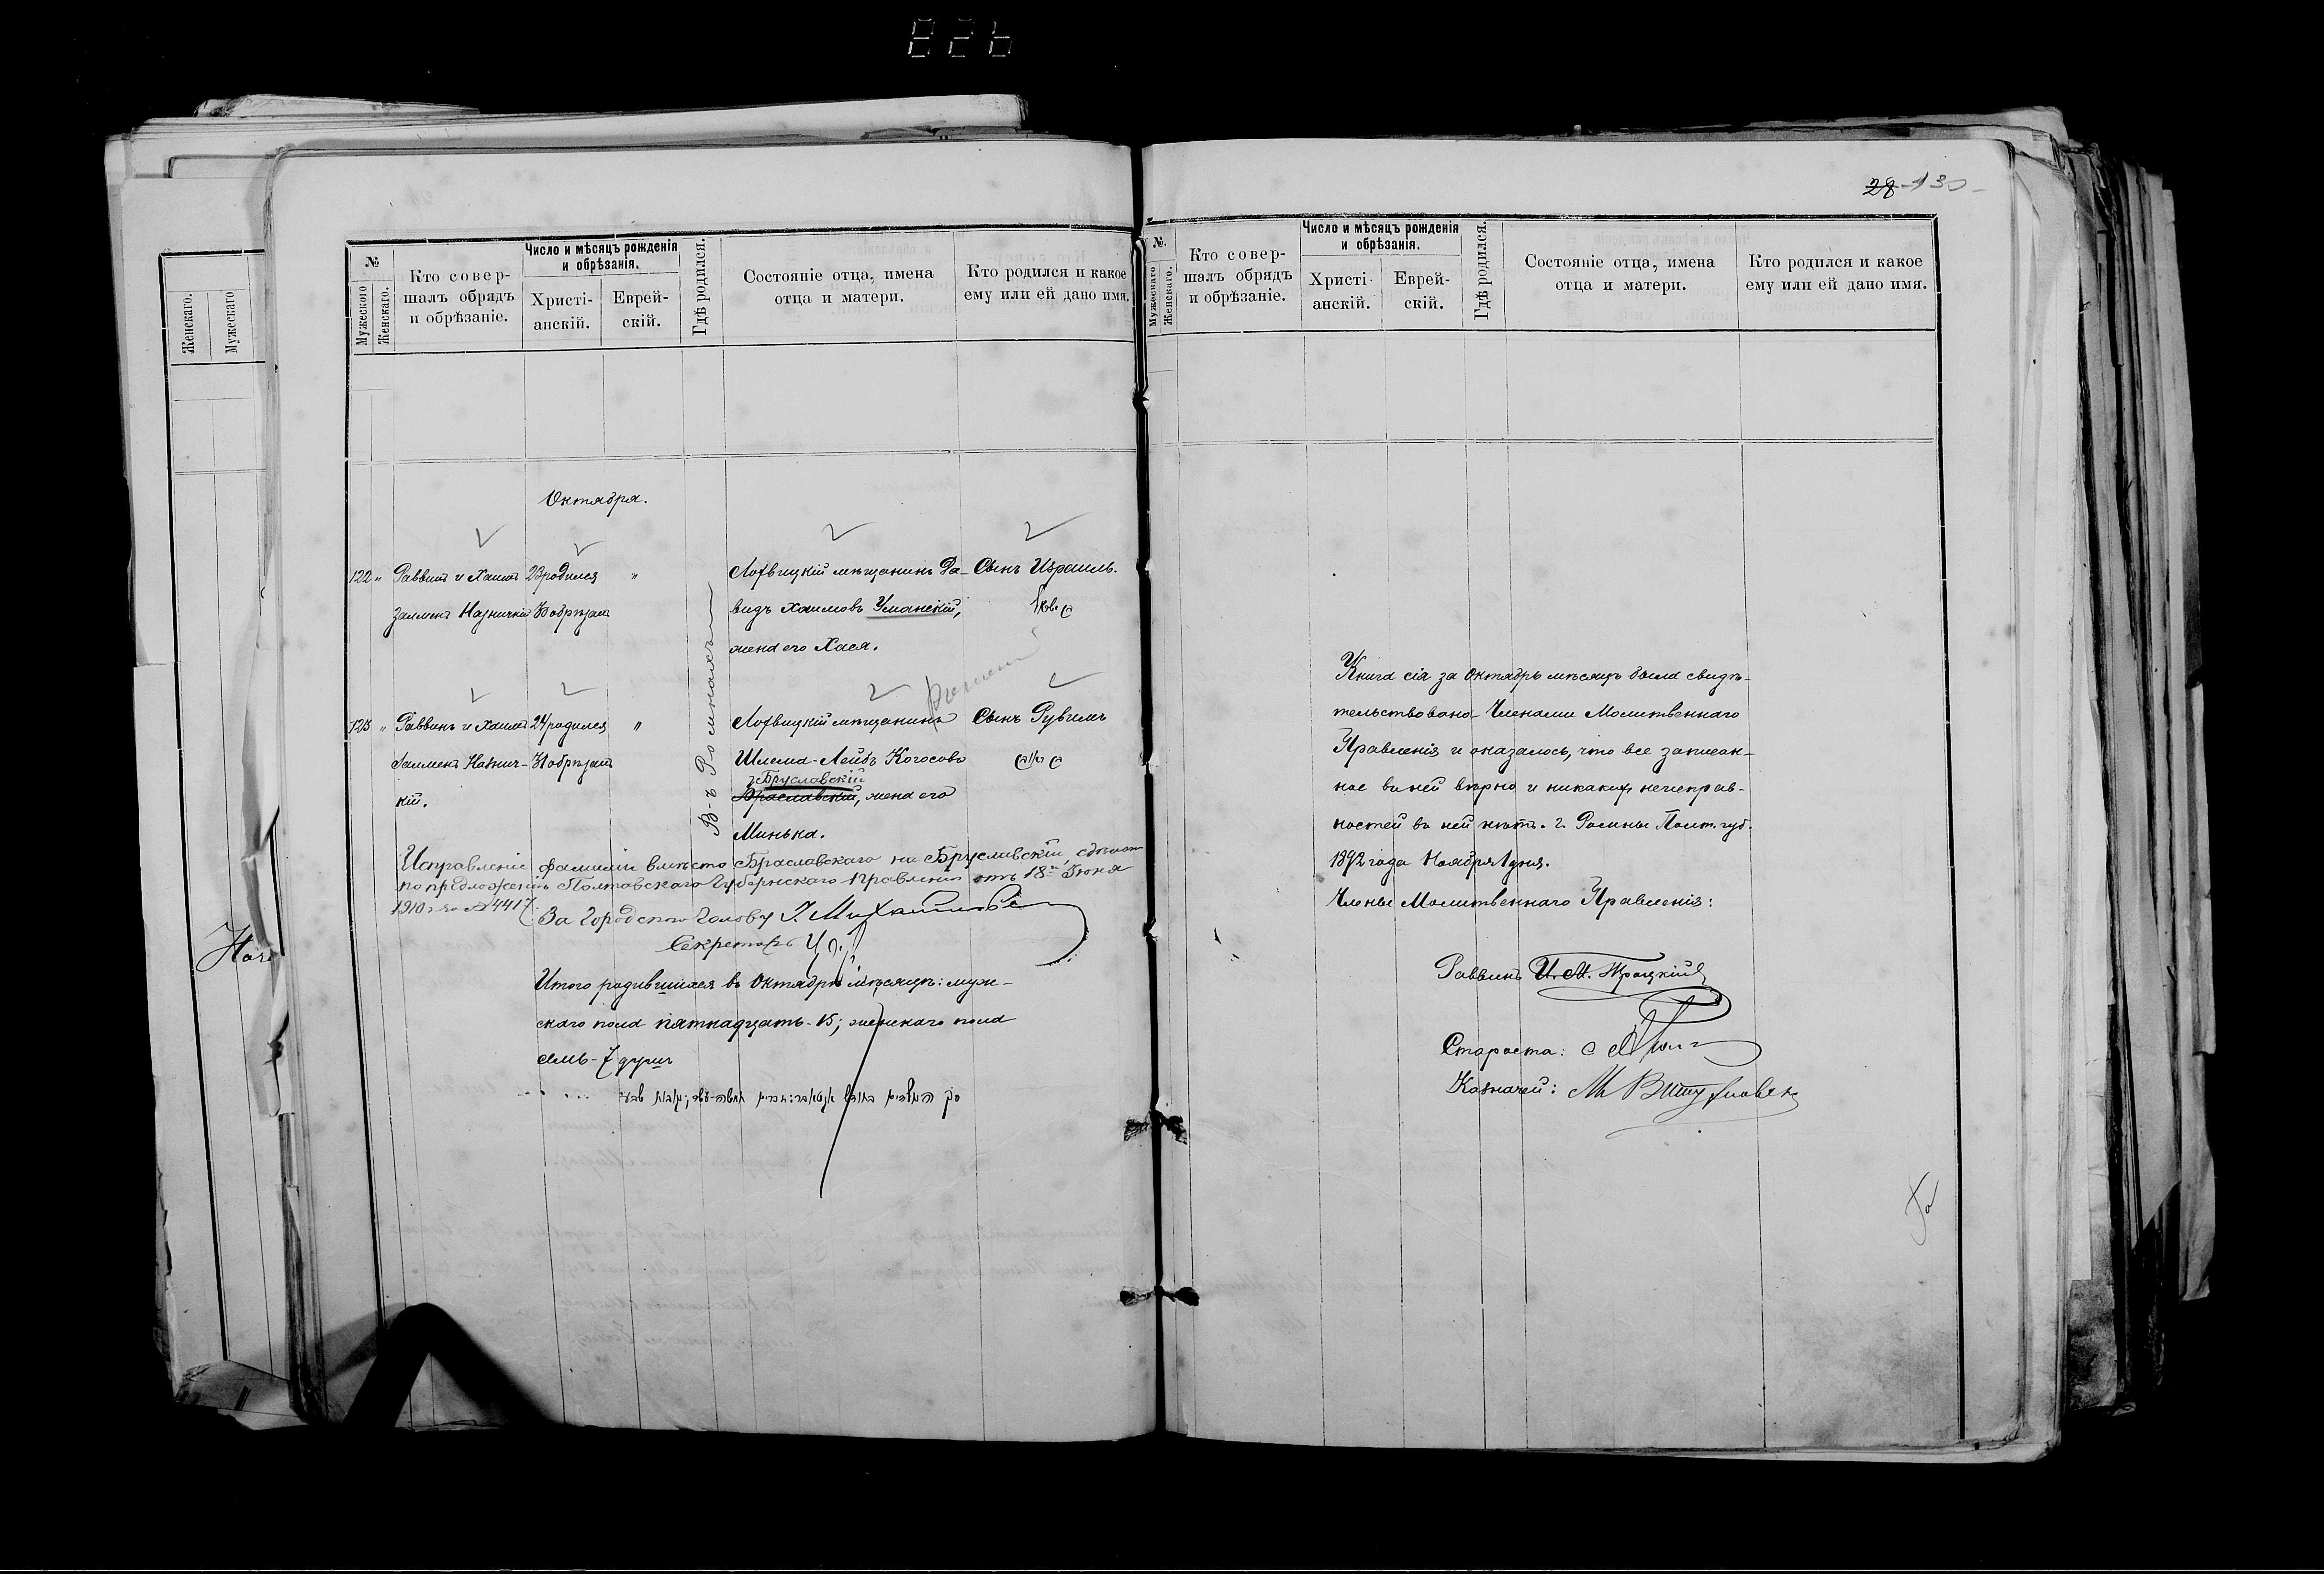 826
Женскаго.
Мужескаго
№
Мужескаго
Женскаго.
Кто совер-
шалъ обрядъ
и обрѣзаніе.
Число и мѣсяцъ рожденія
и обрѣзанія.
Христі-
анскій.
Еврей-
скій.
Гдѣ родился.
Состояніе отца, имена
отца и матери.
Кто родился и какое
ему или ей дано имя.
Октября.
122 " Раввинъ и Хаимъ 23 родился " Лохвицкій мѣщанинъ Да- Сынъ Израиль.
Залменъ 30 обрѣзанъ видъ Хаимовъ Уманскій,
жена его Хася.
В-ъ Ромнахъ
123 " Раввинъ и Хаимъ 24 родился " Лохвицкій мѣщанинъ Сынъ Рувимъ
Залменъ 31 обрѣзанъ Шлема-Лейбъ Когосовъ ראובן
Бруславскій
кій. Браславскій, жена его
Минька.
Исправленіе фамиліи вмѣсто Браславскаго на Бруславскій, сдѣлано
по предложенію Полтавскаго Губернскаго Правленія отъ 18 Іюня
1910 г. за № 4417.
За Городского Голову
Секретарь
Итого родившихся въ Октябрѣ мѣсяцѣ: муж-
скаго пола пятнадцать-15; женскаго пола
семь-7 душъ
28 130
№.
Мужескаго
Женскаго.
Кто совер-
шалъ обрядъ
и обрѣзаніе.
Число и мѣсяцъ рожденія
и обрѣзанія.
Христі-
анскій.
Еврей-
скій.
Гдѣ родился.
Состояніе отца, имена
отца и матери.
Кто родился и какое
ему или ей дано имя.
Книга сія за Октябрь мѣсяцъ была свидѣ-
тельствована Членами Молитвеннаго
Правленія и оказалось, что все записан-
ное въ ней вѣрно и никакихъ неисправ-
ностей въ ней нѣтъ. г. Ромны Полт. губ.
1892 года Ноября 1 дня.
Члены Молитвеннаго Правленія:
Раввинъ И. М. Троцкій
Староста:
Казначей: